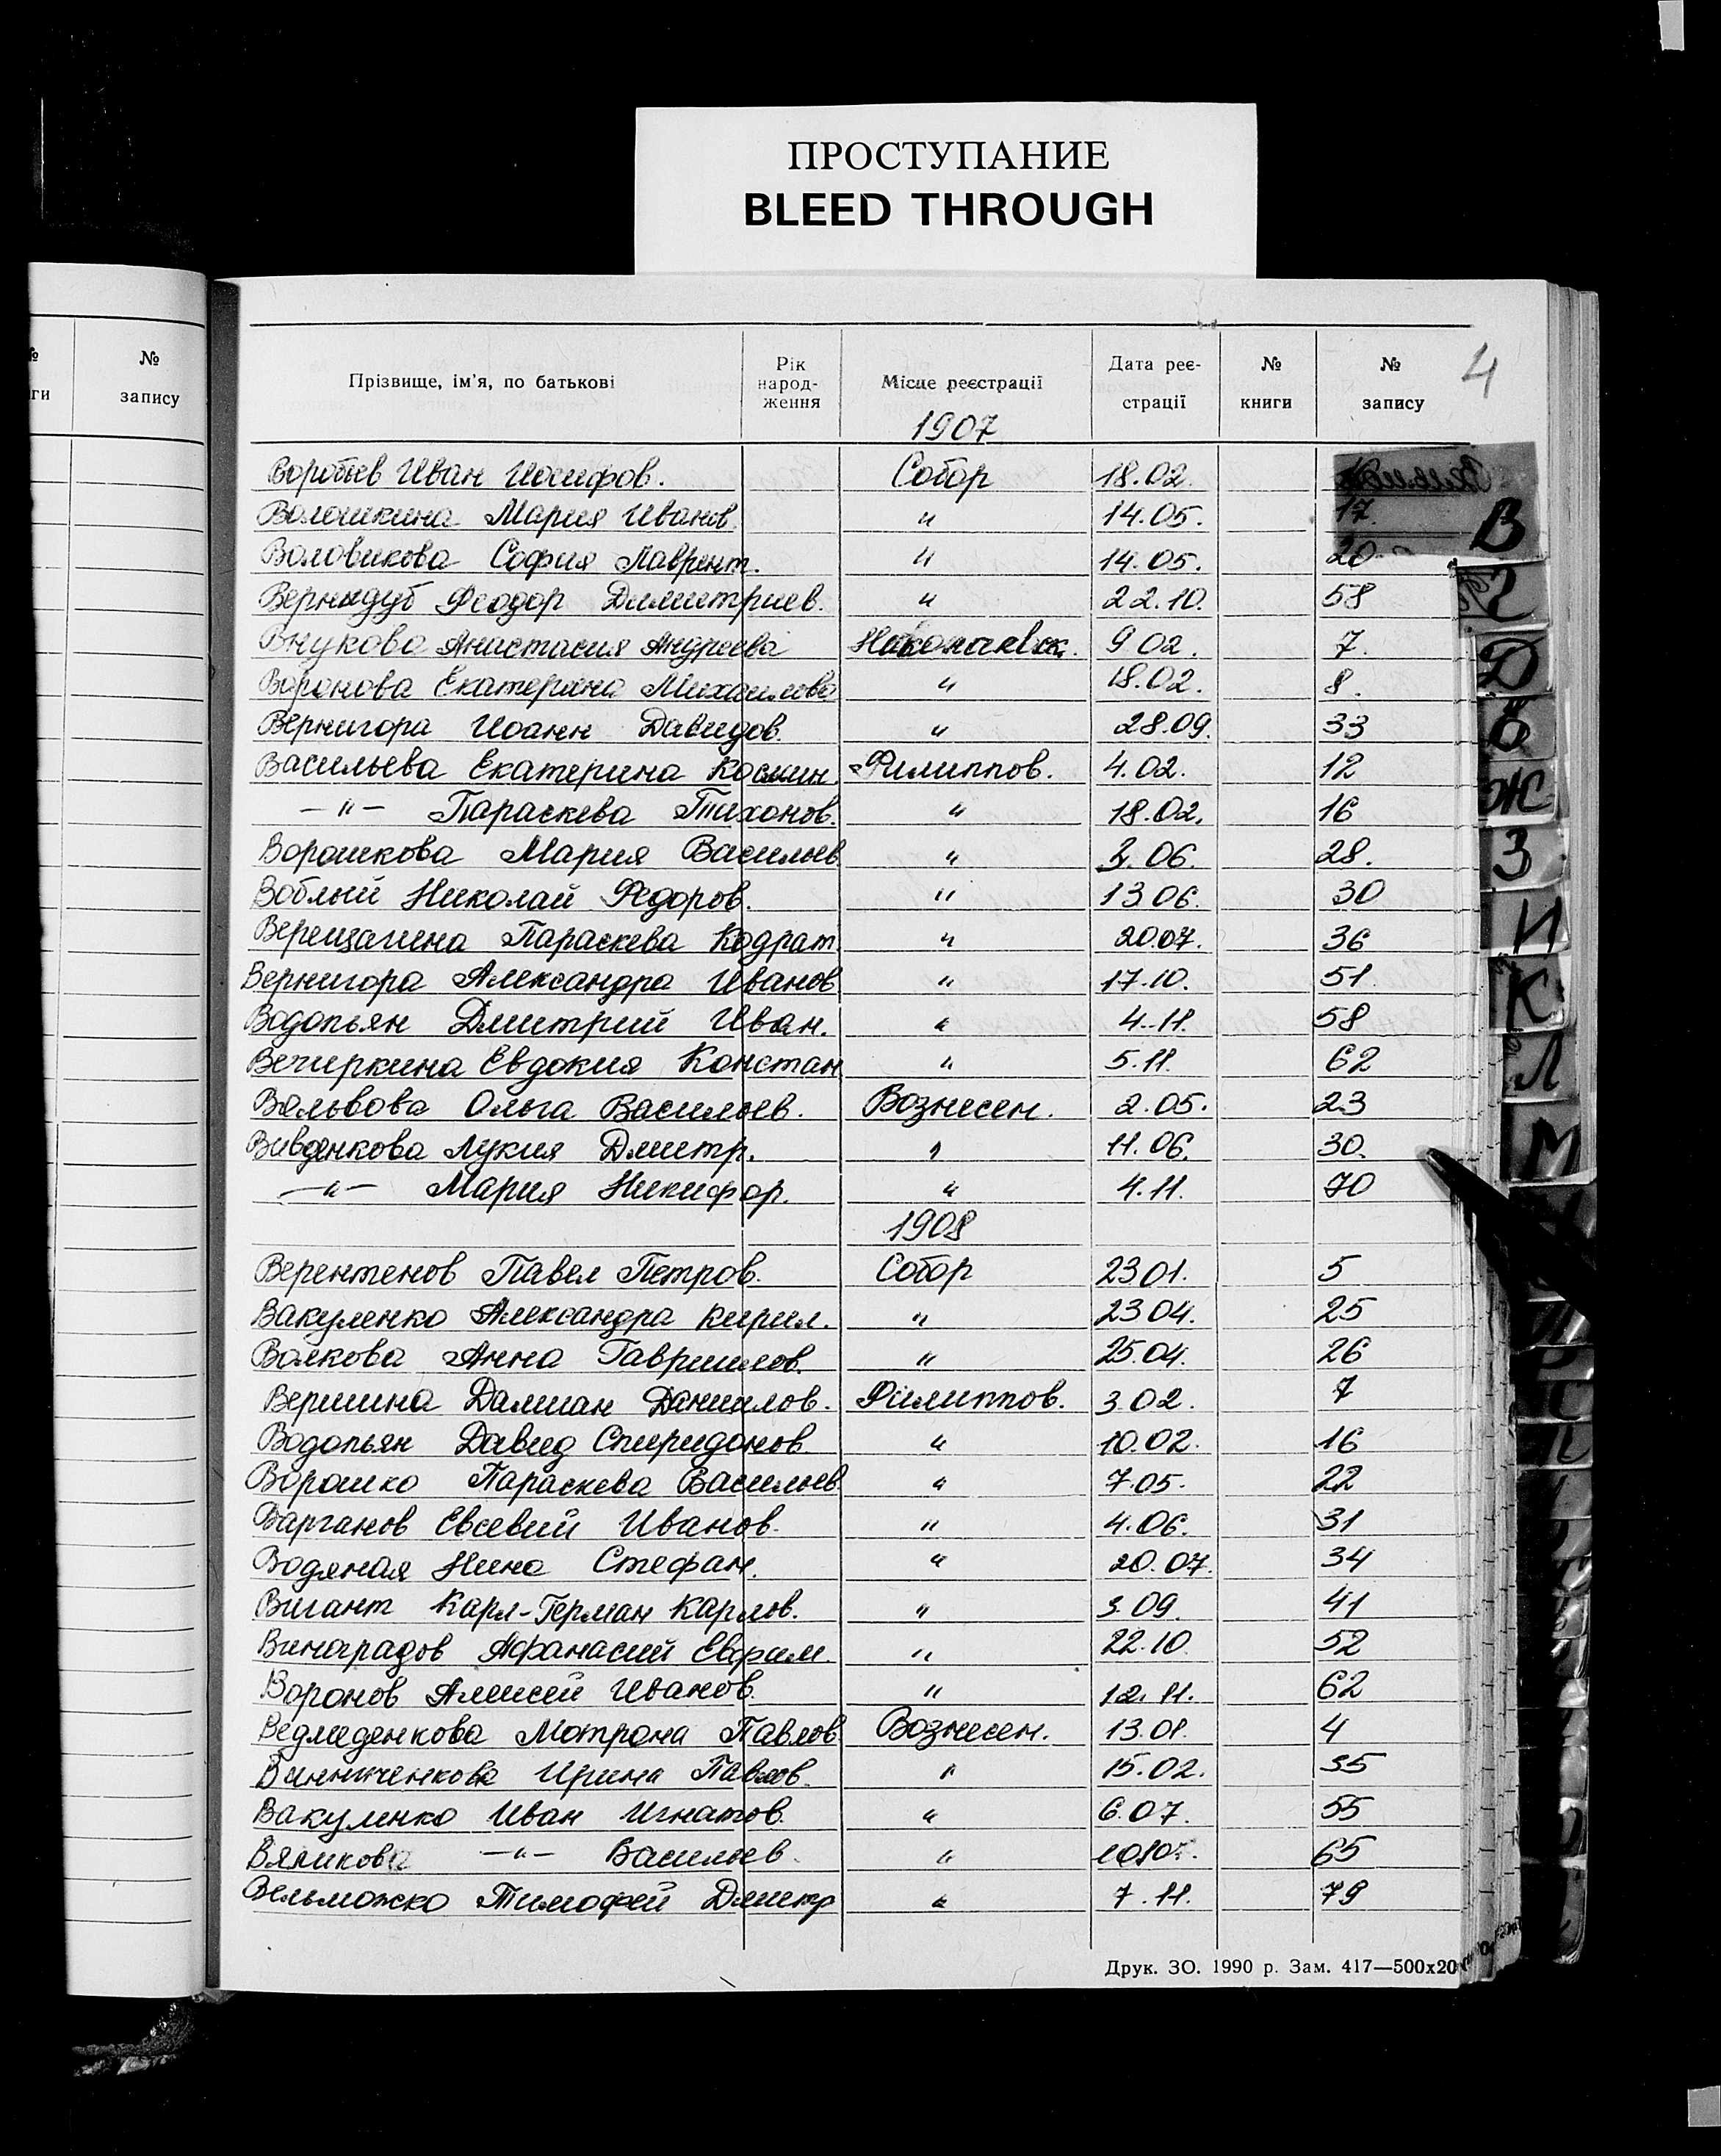 ПРОСТУПАНИЕ
BLEED THROUGH
№ запису
Прізвище, ім'я, по батькові Рік народ-ження Місце реєстрації Дата реє-страції № книги № запису 4
1907
Воробьев Иван Иосифов. Собор 18.02.
Волошкина Мария Иванов. " 14.05. 17.
Воловикова София Лаврент. " 14.05. 20
Вернидуб Феодор Димитриев. " 22.10. 58
Внукова Анастасия Андреева Николаевск. 9 02. 7.
Воронова Екатерина Михаилова " 18.02. 8.
Вернигора Иоанн Давидов. " 28.09. 33
Васильева Екатерина Космин. Филиппов. 4.02. 12
—"— Параскева Тихонов. " 18.02. 16
Ворошкова Мария Васильев. " 3.06. 28.
Воблый Николай Федоров. " 13 06. 30
Верещагина Параскева Кодрат. " 20.07. 36
Вернигора Александра Иванов " 17.10. 51
Водопьян Дмитрий Иван. " 4.11. 58
Вечиркина Евдокия Констан. " 5.11. 62
Вяльвова Ольга Васильев. Вознесен. 2.05. 23
Вивденкова Лукия Дмитр. " 11.06. 30.
—"— Мария Никифор. " 4.11. 70
1908
Верентенов Павел Петров. Собор 23 01. 5
Вакуленко Александра Кирил. " 23 04. 25
Волкова Анна Гавриилов. " 25.04. 26
Вершина Дамиан Даниилов. Филиппов. 3 02. 7
Водопьян Давид Спиридонов " 10.02. 16
Ворошко Параскева Васильев. " 7.05. 22
Варганов Евсевий Иванов. " 4.06. 31
Водяная Нина Стефан. " 20.07. 34
Вигант Карл-Герман Карлов. " 3.09. 41
Виноградов Афанасий Евфим. " 22.10. 52
Воронов Алексей Иванов. " 12.11. 62
Ведмеденкова Мотрона Павлов. Вознесен. 13.01. 4
Винниченкова Ирина Павлов. " 15.02. 35
Вакуленко Иван Игнатов. " 6.07. 55
Вяликова —"— Васильев. " 65
Вельможко Тимофей Дмитр " 7.11. 79
Друк. ЗО. 1990 р. Зам. 417—500х20
В
Г
Д
Ж
З
И
К
Л
М